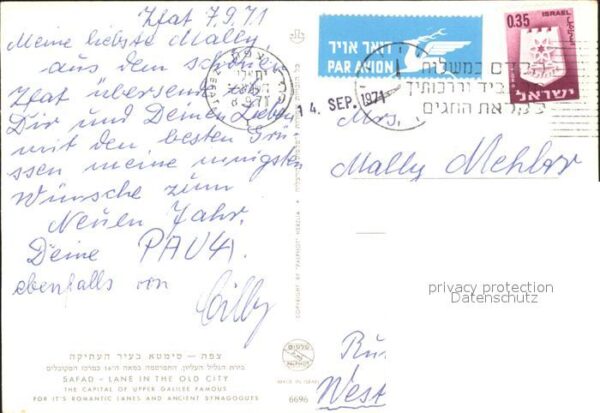 Zfat 7.9.71
Meine liebste Mally
aus dem schönen
Zfat übersende ich
Dir und Deinen Lieben
mit den besten Grü-
ssen meine innigsten
Wünsche zum
Neuen Jahr.
Deine PAULA
ebenfalls von
Cilly
צפת - סימטא בעיר העתיקה
SAFAD - LANE IN THE OLD CITY
THE CAPITAL OF UPPER GALILEE FAMOUS
FOR IT'S ROMANTIC LANES AND ANCIENT SYNAGOGUES
COPYRIGHT BY "PALPHOT" HERZLIA
MADE IN ISRAEL
6696
דואר אויר
PAR AVION
0.35
ISRAEL
ישראל
8.9.71
14. SEP. 1971
במשלוח
ביד וברכותיך
לקראת החגים
Mrs.
Mally Mehler
privacy protection
Datenschutz
West